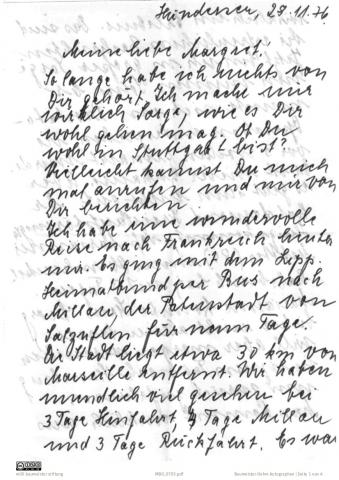 Hinderer, 28.11.76
Meine liebe Margret!
So lange habe ich nichts von
Dir gehört. Ich mache mir
wirklich Sorge, wie es Dir
wohl gehen mag. Ob Du
wohl in Stuttgart bist?
Vielleicht kannst Du mich
mal anrufen und mir von
Dir berichten.
Ich habe eine wundervolle
Reise nach Frankreich hinter
mir. Es ging mit dem Lipp.
Heimatbund per Bus nach
Millau, der Patenstadt von
Salzuflen für neun Tage.
Die Stadt liegt etwa 30 km von
Marseille entfernt. Wir haben
unendlich viel gesehen bei
3 Tage Hinfahrt, 4 Tage Millau
und 3 Tage Rückfahrt. Es war
willi baumeister stiftung
Baumeister Online Autographen | Seite 1 von 4